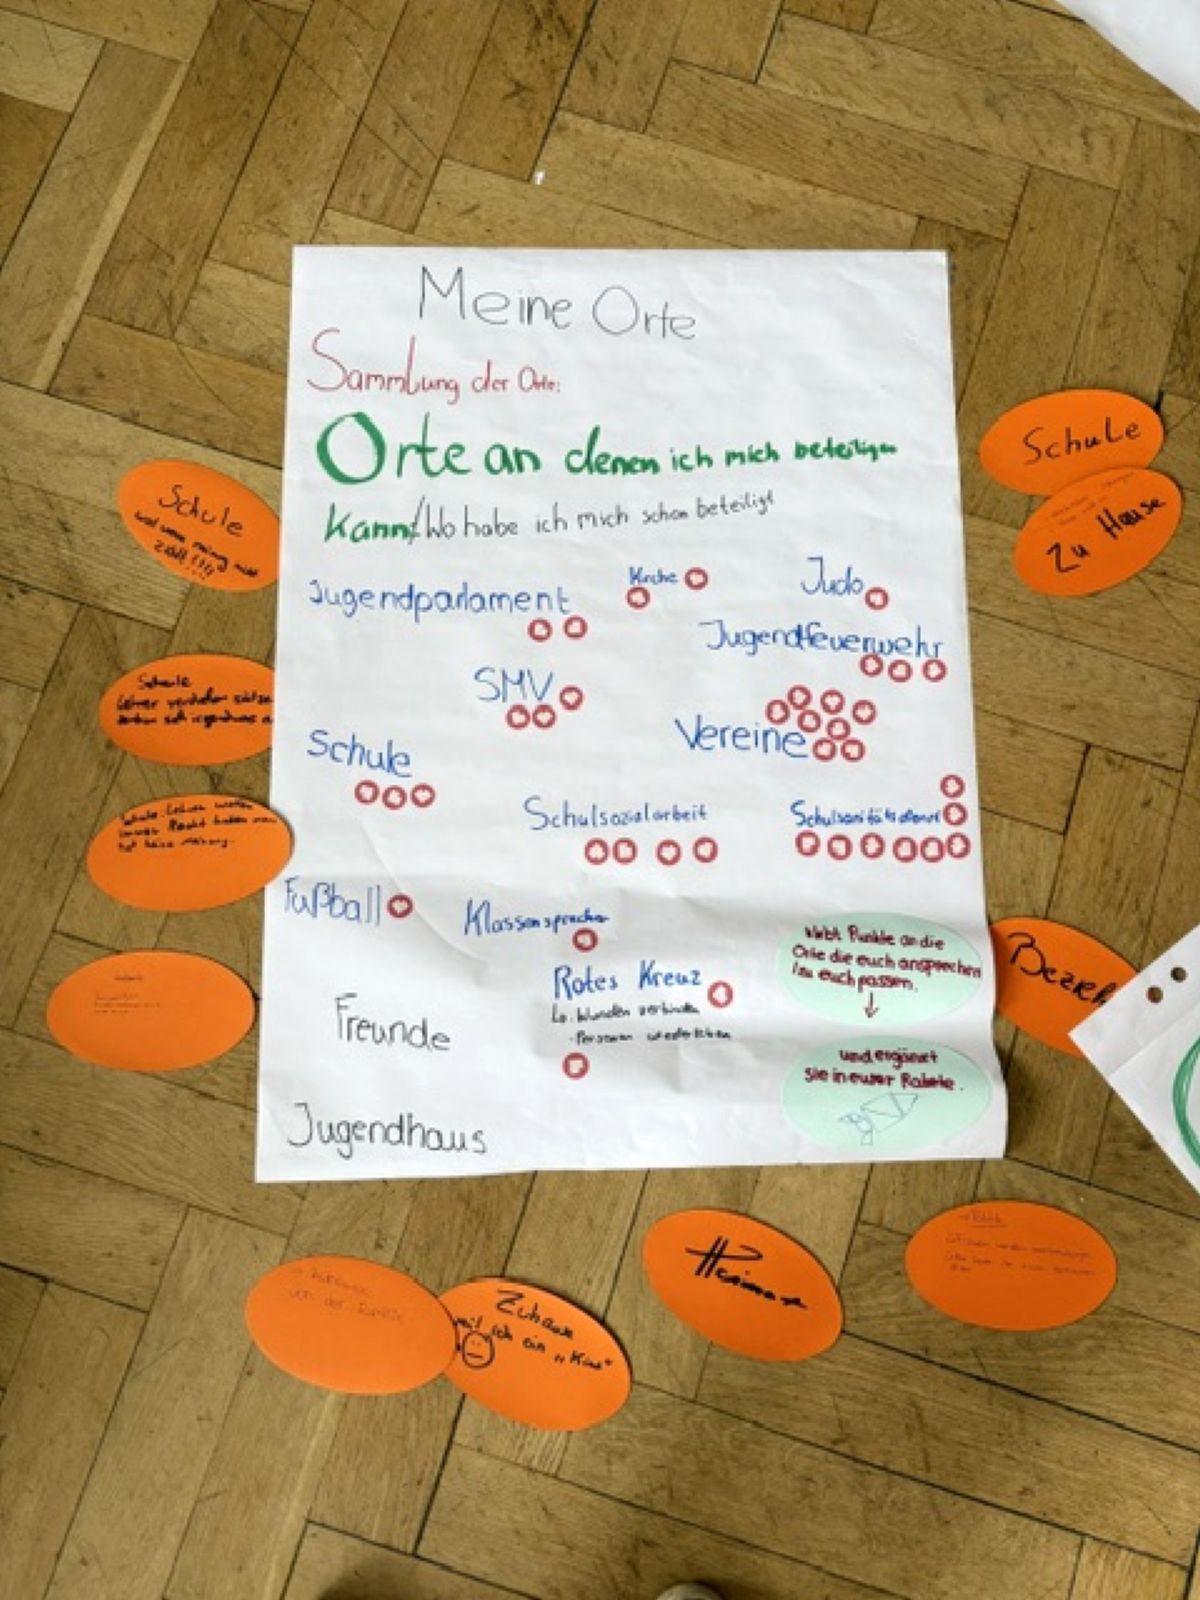 Meine Orte
Sammlung der Orte:
Orte an denen ich mich beteiligen
kann/Wo habe ich mich schon beteiligt
Jugendparlament
Kirche
Judo
Jugendfeuerwehr
SMV
Vereine
Schule
Schulsozialarbeit
Schulsanitätsdienst
Fußball
Klassensprecher
Rotes Kreuz
Wunden verbinden
Personen
Freunde
Jugendhaus
klebt Punkte an die
Orte die euch ansprechen
/zu euch passen.
↓
und ergänzt
sie in eurer Rakete.
Schule
zählt !!!
Schule
Lehrer
Schule: Lehrer wollen
immer Recht haben man
hat keine Meinung.
Schule
Zu Hause
Bezieh
von der Familie
Zuhause
weil ich ein „Kind"